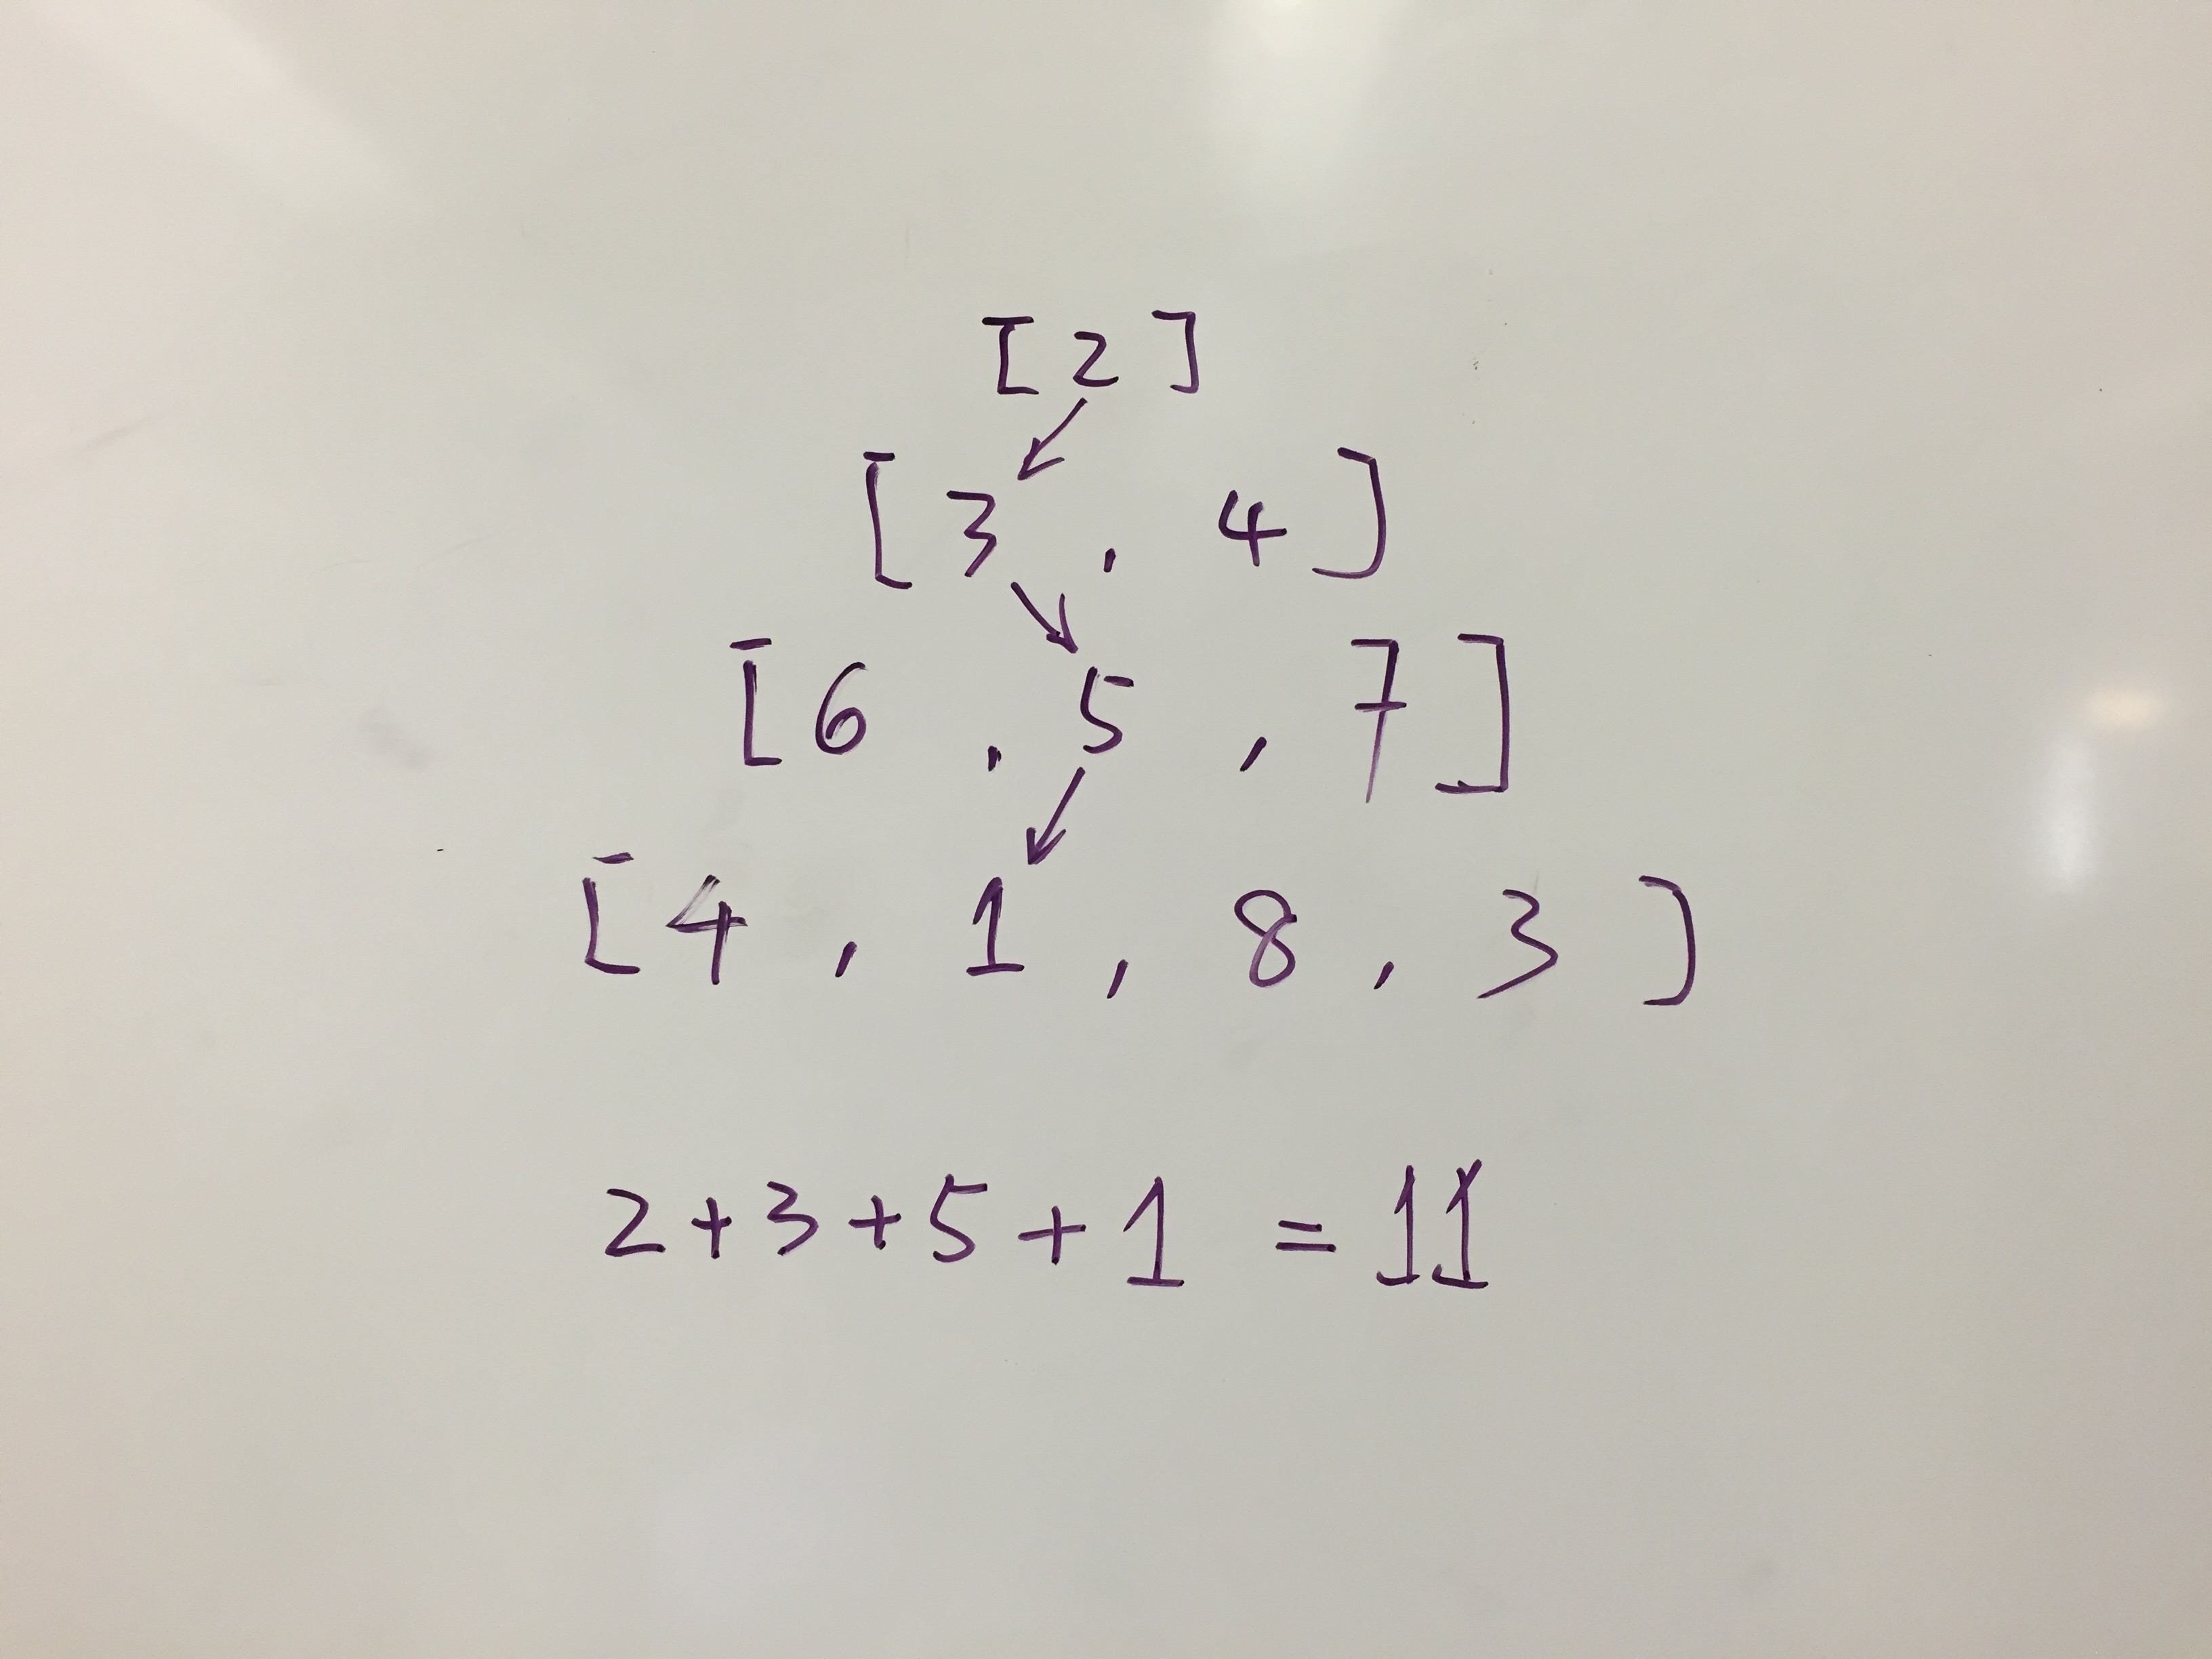 [2]
[3, 4]
[6, 5, 7]
[4, 1, 8, 3]
2+3+5+1 = 11